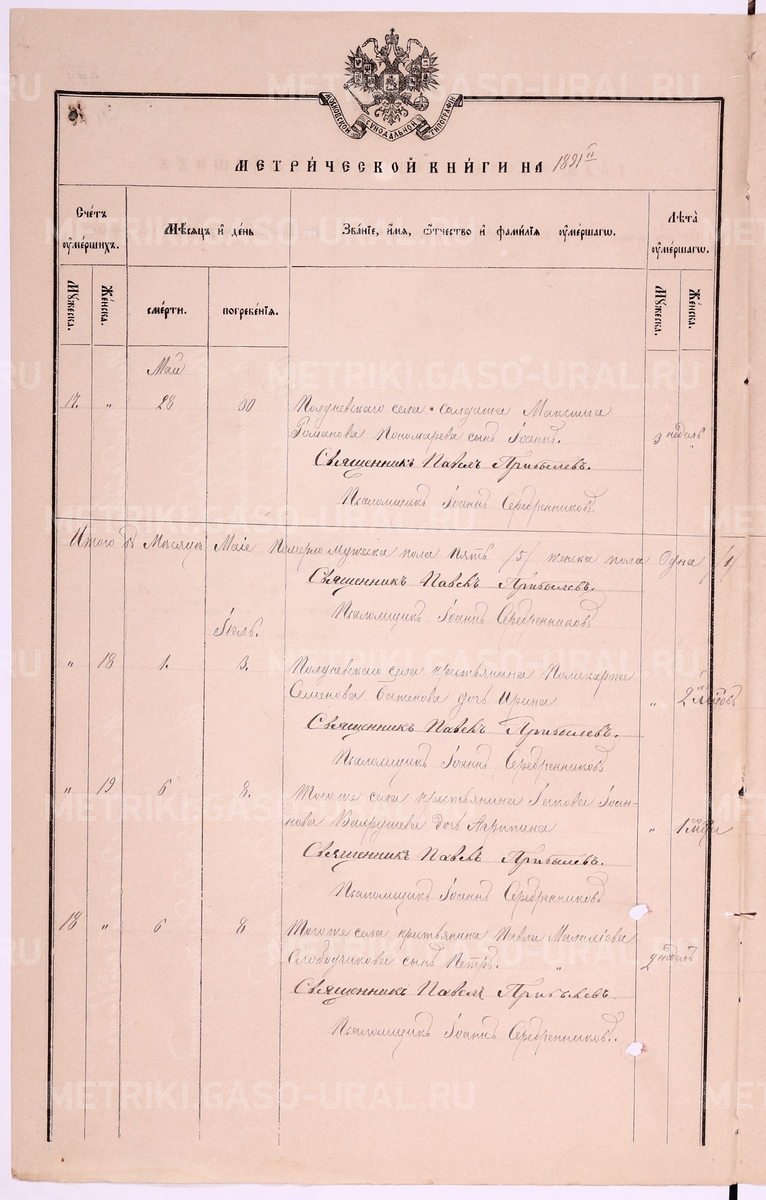 МОСКОВСКОЙ СѴНОДАЛЬНОЙ ТИПОГРАФІИ
МЕТРИ́ЧЕСКОЙ КНИ́ГИ НА 1891
Сче́тъ ᲂу҆ме́ршихъ.
Мѣ́сяцъ и҆ де́нь
Зва́нїе, и҆́мя, ѻ҆́тчество и҆ фамилїѧ ᲂу҆ме́ршагѡ.
Лѣта̀ ᲂу҆ме́ршагѡ.
Мꙋ́жеска.
Же́нска.
сме́рти.
погребе́нїя.
Мꙋ́жеска.
Же́нска.
Май
17. " 28 30 Полдневскаго села солдата Максима
Романова Пономарева сынъ Іоаннъ. 3 недѣль "
Священникъ Павелъ Прибылевъ.
Псаломщикъ Іоаннъ Серебренниковъ.
Итого въ Мѣсяцѣ Маіе Померло мужеска пола пять /5/ женска пола Одна /1/
Священникъ Павелъ Прибылевъ.
Псаломщикъ Іоаннъ Серебренниковъ
" 18 1. 3. Полдневскаго села крестьянина Поликарпа
Семенова Баженова дочь Ирина " 2
Священникъ Павелъ Прибылевъ.
Псаломщикъ Іоаннъ Серебренниковъ
" 19 6 8. Того же села крестьянина Іакова Іоан-
нова Вахрушева дочь Агрипина "
Священникъ Павелъ Прибылевъ.
Псаломщикъ Іоаннъ Серебренниковъ
18 " 6 8 Того же села крестьянина Павла
Слободчикова сынъ Петръ. " 2 недѣль
Священникъ Павелъ Прибылевъ
Псаломщикъ Іоаннъ Серебренниковъ.
METRIKI.GASO-URAL.RU